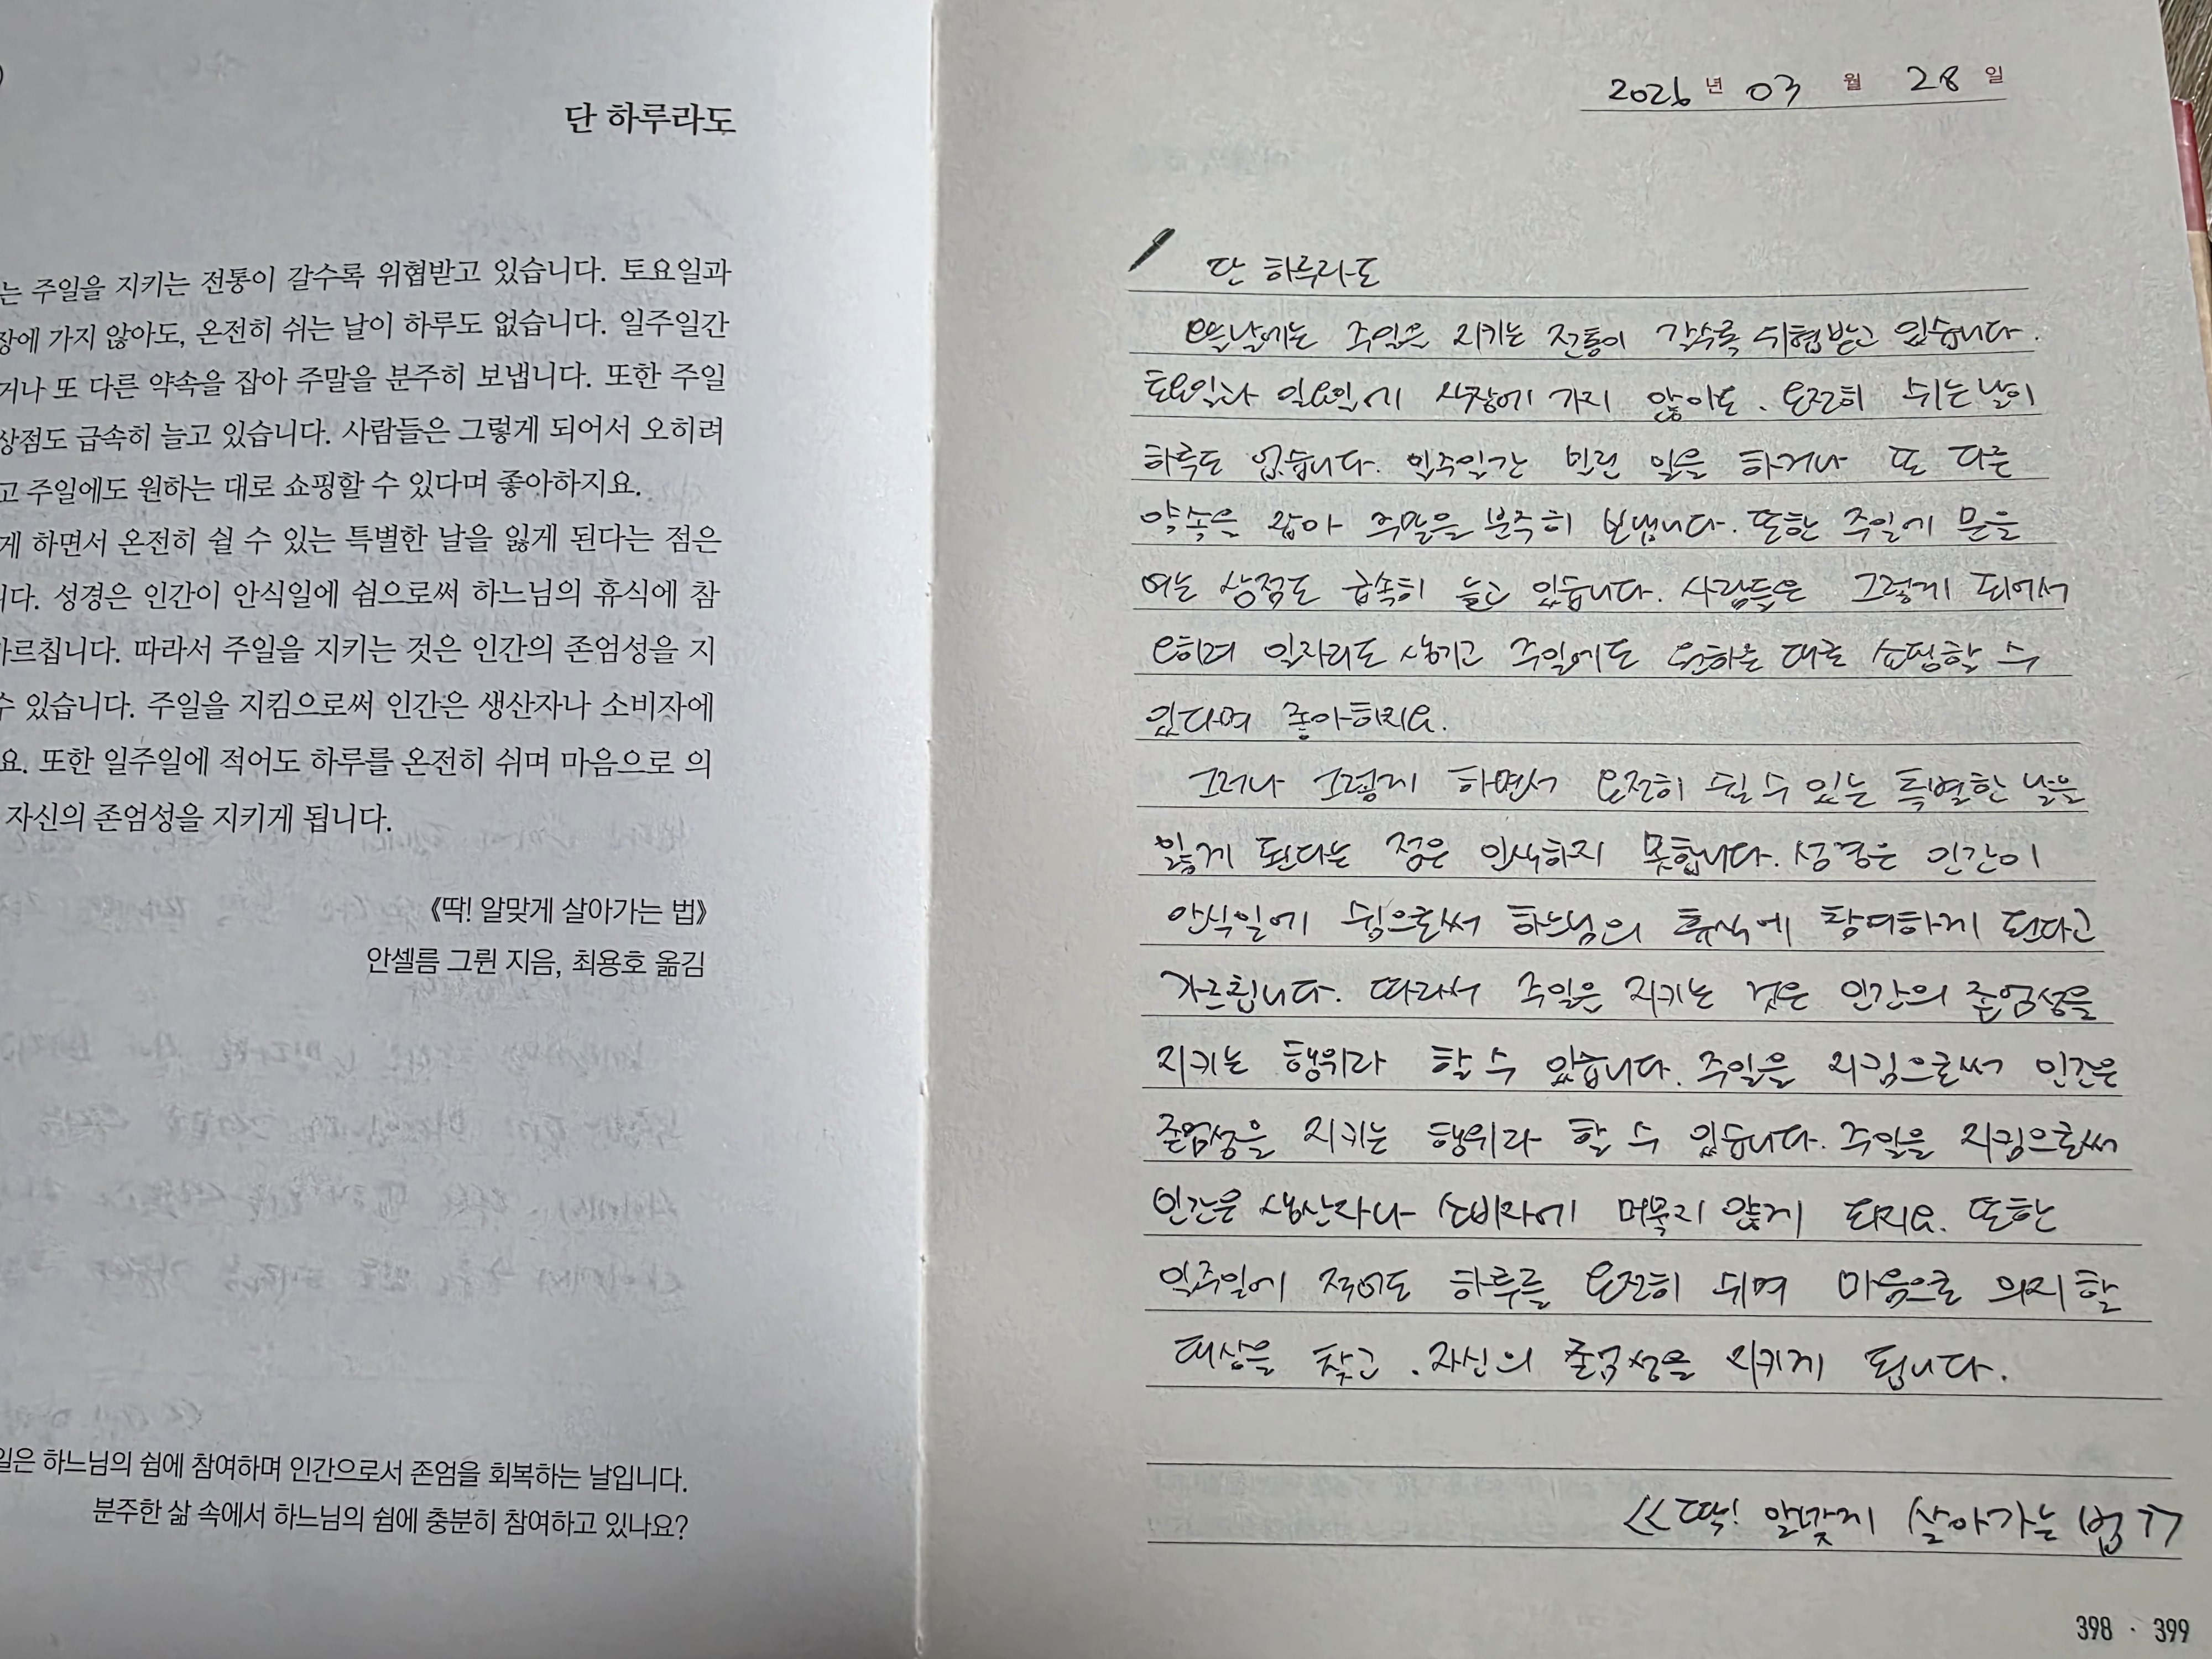 단 하루라도
는 주일을 지키는 전통이 갈수록 위협받고 있습니다. 토요일과
장에 가지 않아도, 온전히 쉬는 날이 하루도 없습니다. 일주일간
거나 또 다른 약속을 잡아 주말을 분주히 보냅니다. 또한 주일
상점도 급속히 늘고 있습니다. 사람들은 그렇게 되어서 오히려
고 주일에도 원하는 대로 쇼핑할 수 있다며 좋아하지요.
게 하면서 온전히 쉴 수 있는 특별한 날을 잃게 된다는 점은
니다. 성경은 인간이 안식일에 쉼으로써 하느님의 휴식에 참
가르칩니다. 따라서 주일을 지키는 것은 인간의 존엄성을 지
수 있습니다. 주일을 지킴으로써 인간은 생산자나 소비자에
요. 또한 일주일에 적어도 하루를 온전히 쉬며 마음으로 의
자신의 존엄성을 지키게 됩니다.
《딱! 알맞게 살아가는 법》
안셀름 그륀 지음, 최용호 옮김
일은 하느님의 쉼에 참여하며 인간으로서 존엄을 회복하는 날입니다.
분주한 삶 속에서 하느님의 쉼에 충분히 참여하고 있나요?
2026 년 03 월 28 일
단 하루라도
오늘날에는 주일을 지키는 전통이 갈수록 위협받고 있습니다.
토요일과 일요일에 시장에 가지 않아도. 온전히 쉬는 날이
하루도 없습니다. 일주일간 밀린 일을 하거나 또 다른
약속을 잡아 주말을 분주히 보냅니다. 또한 주일에 문을
여는 상점도 급속히 늘고 있습니다. 사람들은 그렇게 되어서
오히려 일자리도 생기고 주일에도 원하는 대로 쇼핑할 수
있다며 좋아하지요.
그러나 그렇게 하면서 온전히 쉴 수 있는 특별한 날을
잃게 된다는 점은 인식하지 못합니다. 성경은 인간이
안식일에 쉼으로써 하느님의 휴식에 참여하게 된다고
가르칩니다. 따라서 주일을 지키는 것은 인간의 존엄성을
지키는 행위라 할 수 있습니다. 주일을 지킴으로써 인간은
존엄성을 지키는 행위라 할 수 있습니다. 주일을 지킴으로써
인간은 생산자나 소비자에 머물지 않게 되지요. 또한
일주일에 적어도 하루를 온전히 쉬며 마음으로 의지할
대상을 찾고. 자신의 존엄성을 지키게 됩니다.
<<딱! 알맞게 살아가는 법>>
398 · 399